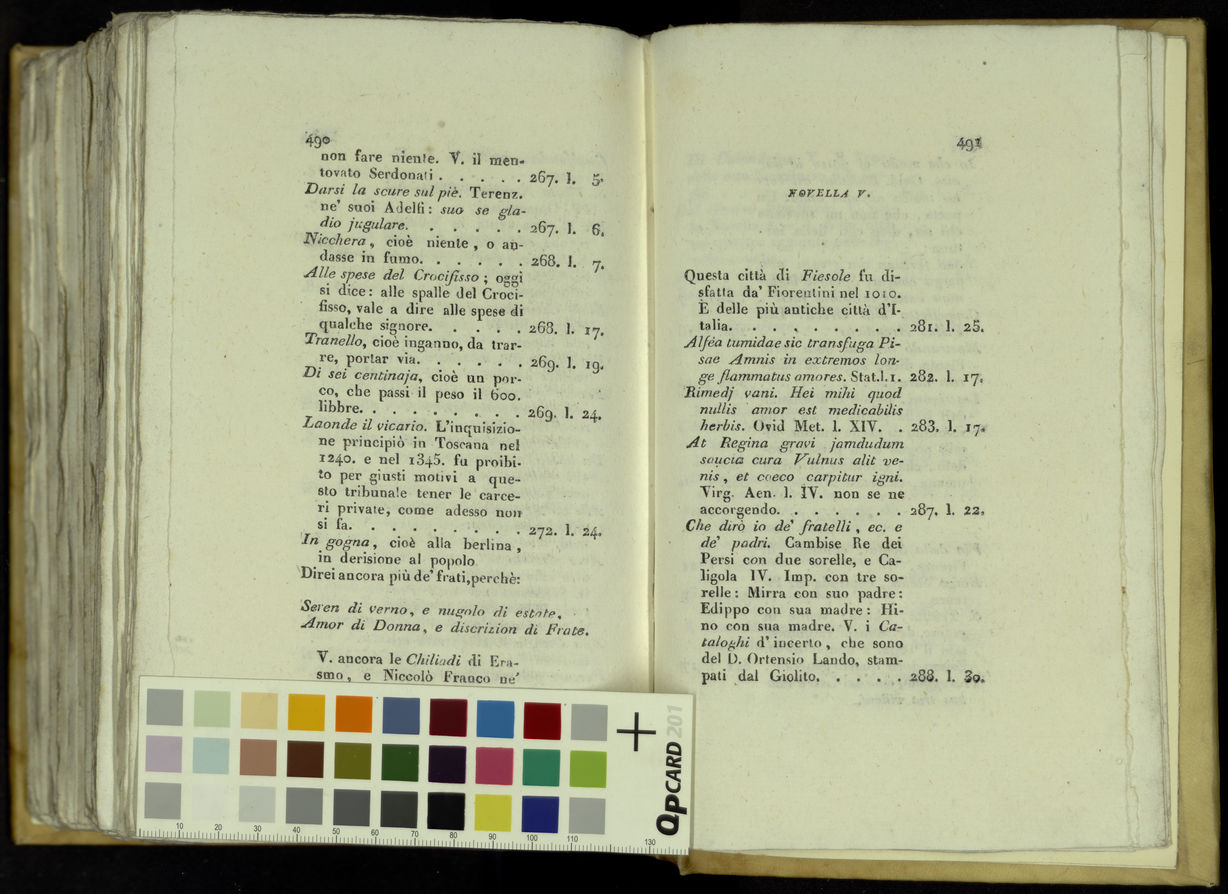 490
non fare niente. V. il men-
tovato Serdonati . . . . . 267. l. 5.
Darsi la scure sul piè. Terenz.
ne' suoi Adelfi: suo se gla-
dio jugulare. . . . . . 267. l. 6.
Nicchera, cioè niente, o an-
dasse in fumo. . . . . . 268. l. 7.
Alle spese del Crocifisso; oggi
si dice: alle spalle del Croci-
fisso, vale a dire alle spese di
qualche signore. . . . . 268. l. 17.
Tranello, cioè inganno, da trar-
re, portar via. . . . . . 269. l. 19.
Di sei centinaja, cioè un por-
co, che passi il peso il 600.
libbre. . . . . . . . . 269. l. 24.
Laonde il vicario. L'inquisizio-
ne principiò in Toscana nel
1240. e nel 1345. fu proibi-
to per giusti motivi a que-
sto tribunale tener le carce-
ri private, come adesso non
si fa. . . . . . . . . 272. l. 24.
In gogna, cioè alla berlina,
in derisione al popolo
Direi ancora più de' frati, perchè:
Seren di verno, e nugolo di estate,
Amor di Donna, e discrizion di Frate.
V. ancora le Chiliadi di Era-
smo, e Niccolò Franco ne'
491
NOVELLA V.
Questa città di Fiesole fu di-
sfatta da' Fiorentini nel 1010.
È delle più antiche città d'I-
talia. . . . . . . . . 281. l. 25.
Alféa tumidae sic transfuga Pi-
sae Amnis in extremos lon-
ge flammatus amores. Stat. l. 1. 282. l. 17.
Rimedj vani. Hei mihi quod
nullis amor est medicabilis
herbis. Ovid Met. l. XIV. . 283. l. 17.
At Regina gravi jamdudum
saucia cura Vulnus alit ve-
nis, et coeco carpitur igni.
Virg. Aen. l. IV. non se ne
accorgendo. . . . . . . 287. l. 22.
Che dirò io de' fratelli, ec. e
de' padri. Cambise Re dei
Persi con due sorelle, e Ca-
ligola IV. Imp. con tre so-
relle: Mirra con suo padre:
Edippo con sua madre: Hi-
no con sua madre. V. i Ca-
taloghi d'incerto, che sono
del D. Ortensio Lando, stam-
pati dal Giolito. . . . . 288. l. 30.
QPCARD 201
10 20 30 40 50 60 70 80 90 100 110 130